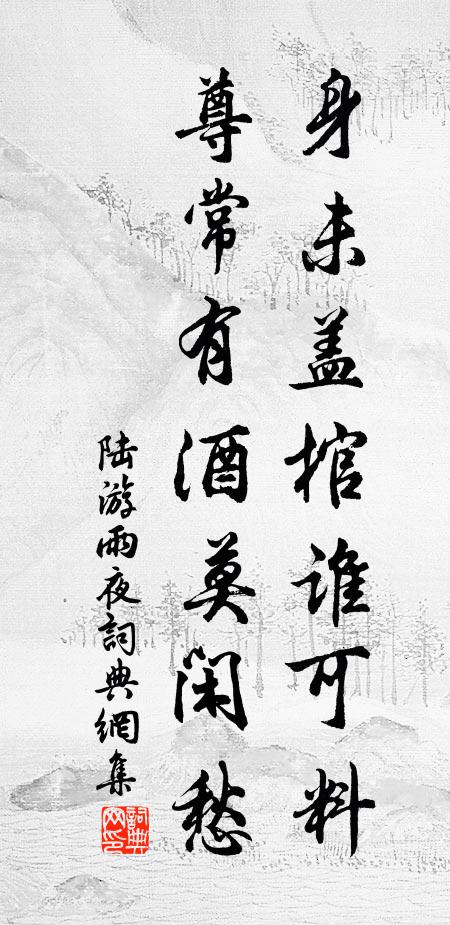 身未盖棺谁可料
尊常有酒莫闲愁
陆游雨夜詞典網集
詞典网印